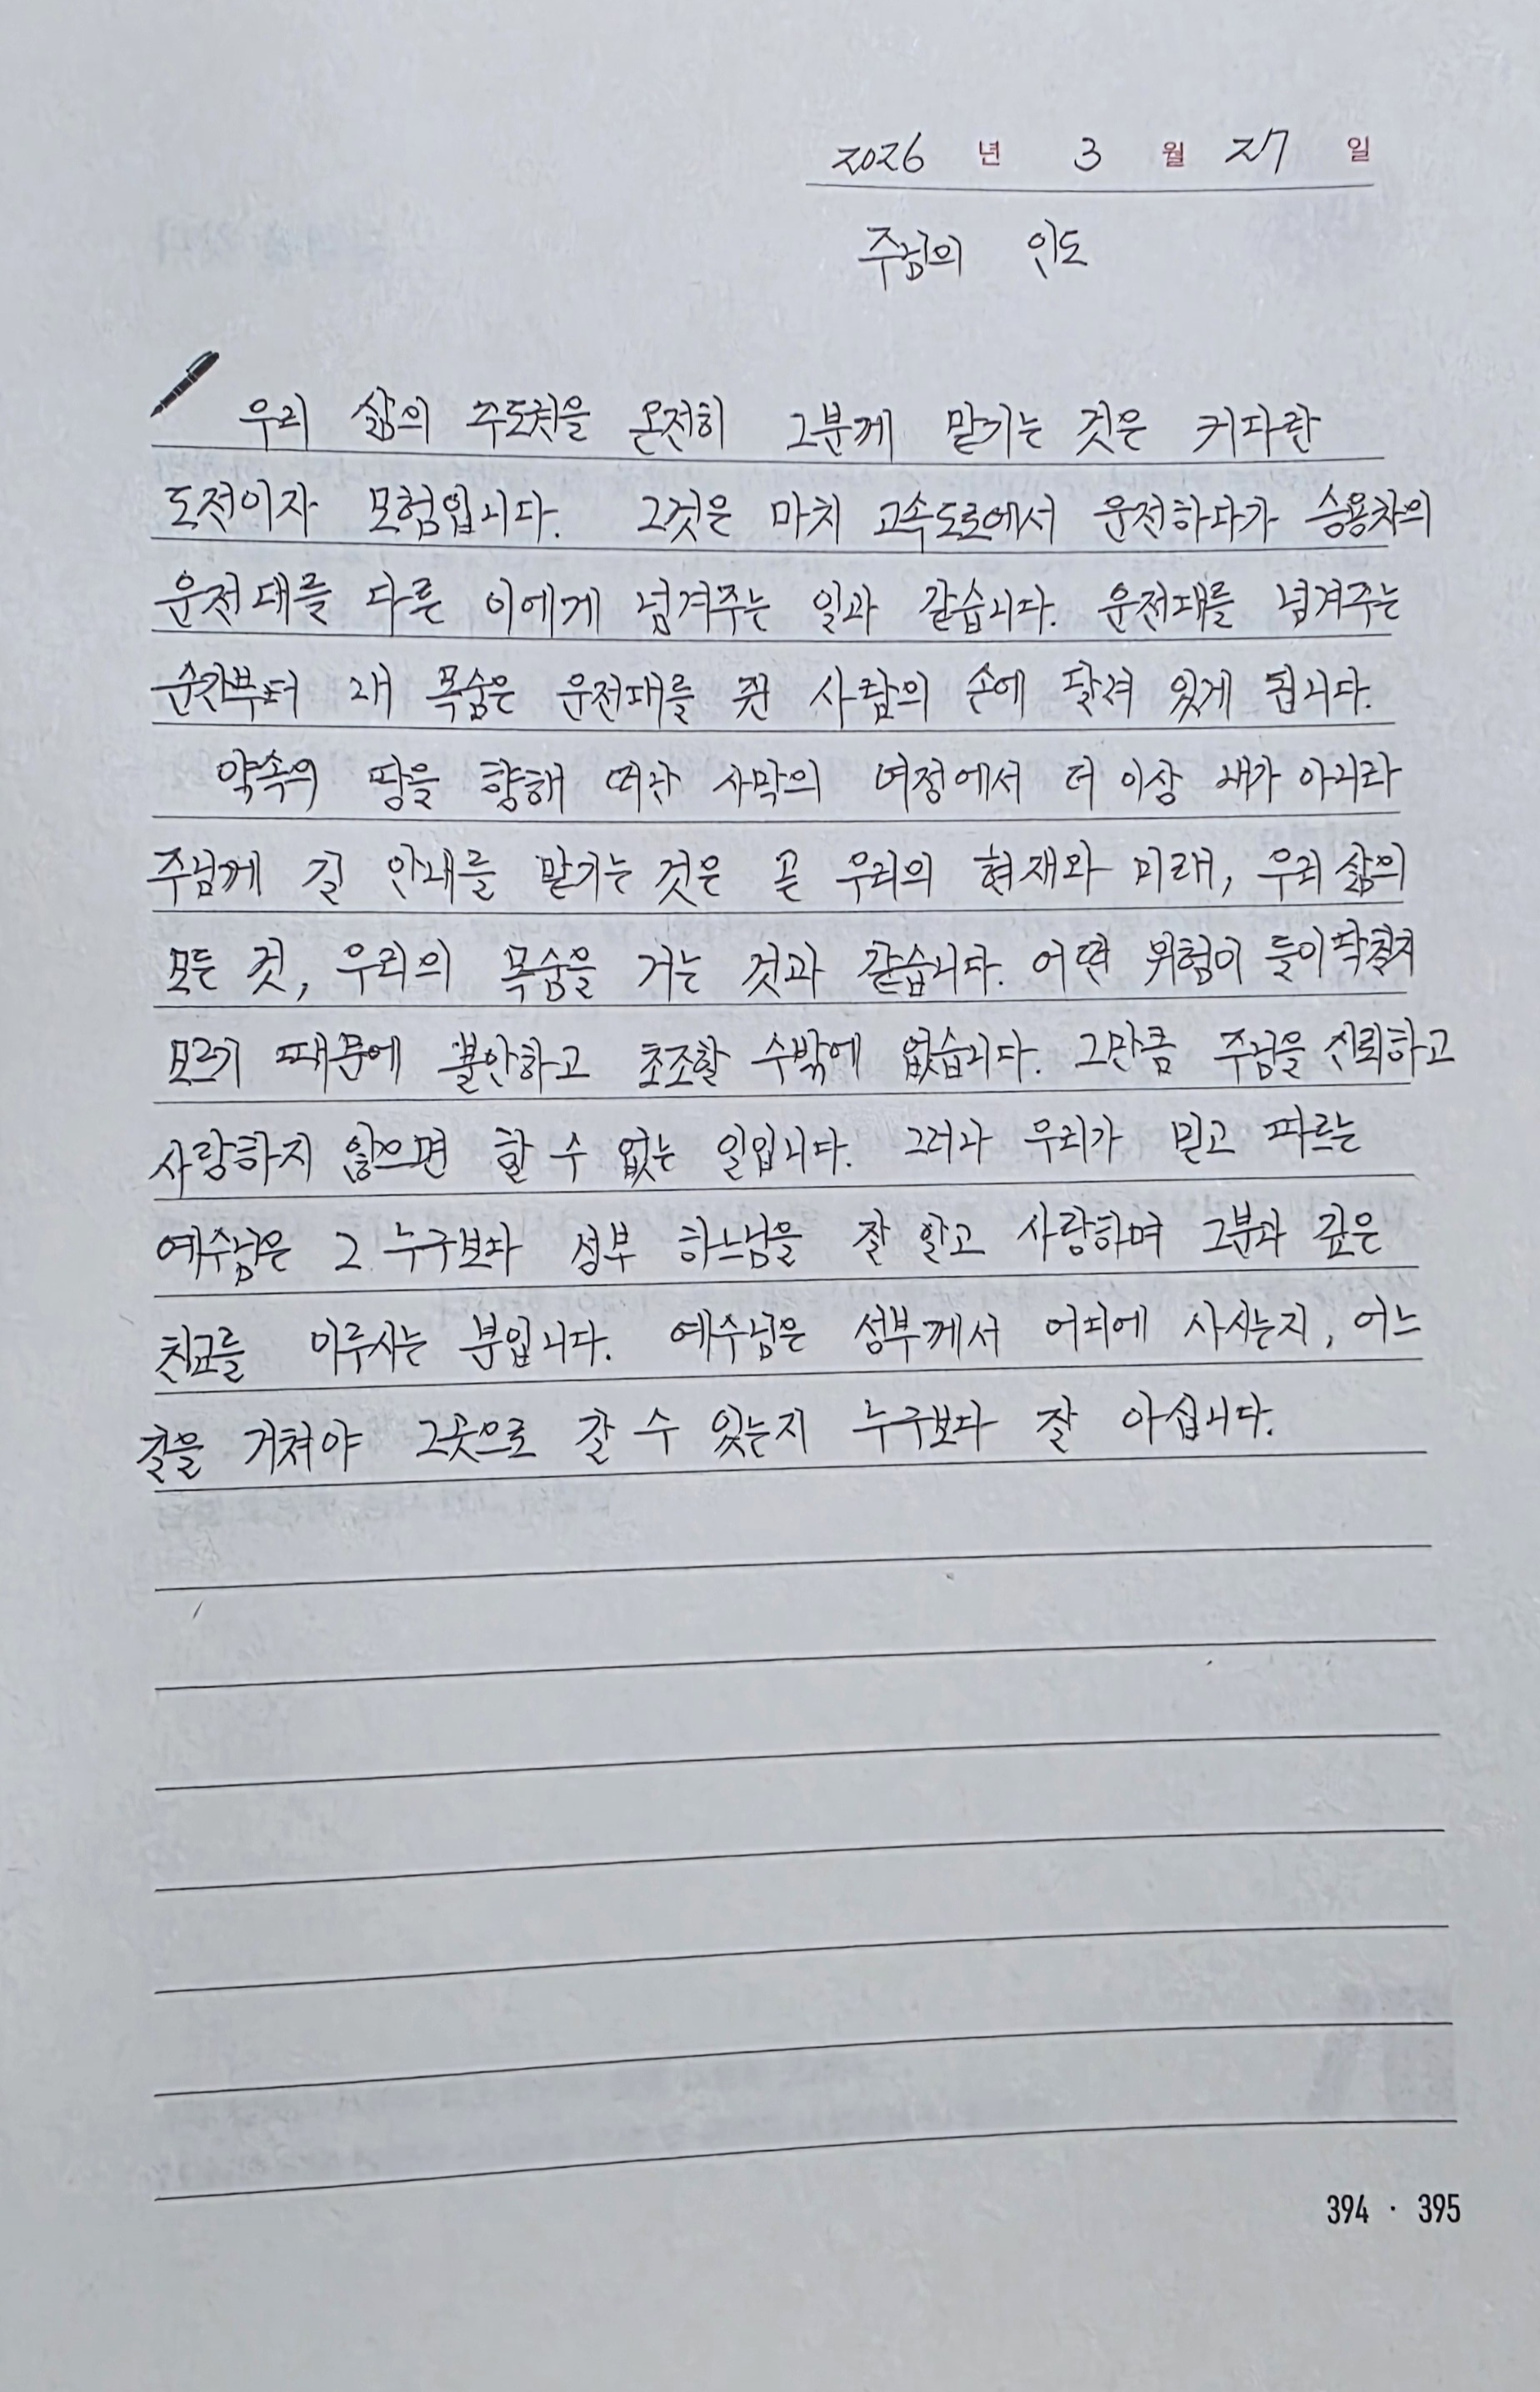 2026 년 3 월 27 일
주님의 인도
우리 삶의 주도권을 온전히 그분께 맡기는 것은 커다란
도전이자 모험입니다. 그것은 마치 고속도로에서 운전하다가 승용차의
운전대를 다른 이에게 넘겨주는 일과 같습니다. 운전대를 넘겨주는
순간부터 내 목숨은 운전대를 쥔 사람의 손에 달려 있게 됩니다.
약속의 땅을 향해 떠난 사막의 여정에서 더 이상 내가 아니라
주님께 길 안내를 맡기는 것은 곧 우리의 현재와 미래, 우리 삶의
모든 것, 우리의 목숨을 거는 것과 같습니다. 어떤 위험이 들이닥칠지
모르기 때문에 불안하고 초조할 수밖에 없습니다. 그만큼 주님을 신뢰하고
사랑하지 않으면 할 수 없는 일입니다. 그러나 우리가 믿고 따르는
예수님은 그 누구보다 성부 하느님을 잘 알고 사랑하며 그분과 깊은
친교를 이루시는 분입니다. 예수님은 성부께서 어디에 사시는지, 어느
길을 거쳐야 그곳으로 갈 수 있는지 누구보다 잘 아십니다.
394 · 395